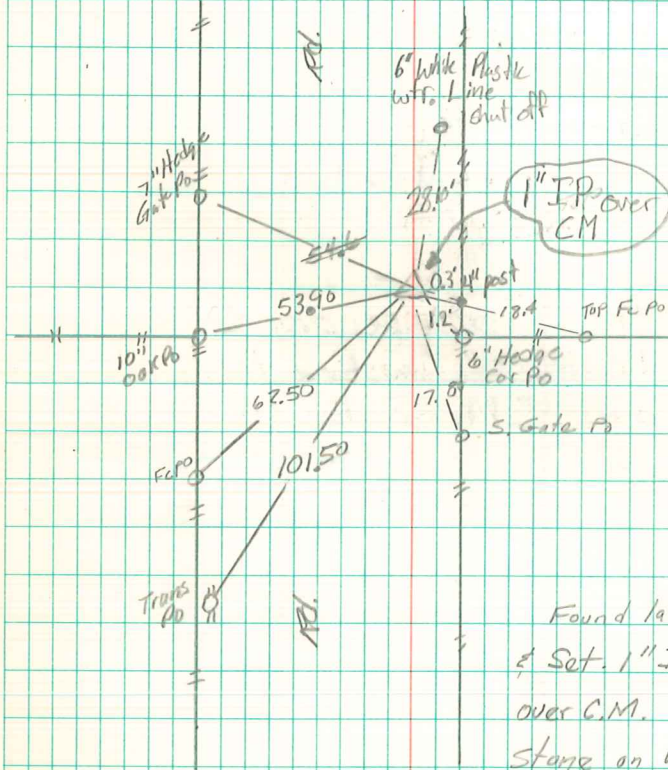 Rd.
6" White Plastic
wtr. Line
shut off
7" Hedge
Gate Po
28.10'
1" IP over
CM
54.6
0.3' 4" post
53.90
1.2'
18.4
Top Fc Po
10"
Oak Po
6" Hedge
Cor Po
62.50
17.8
S. Gate Po
101.50
Fc Po
Trans
Po
Rd.
Found
& Set. 1"
over C.M.
Stone on